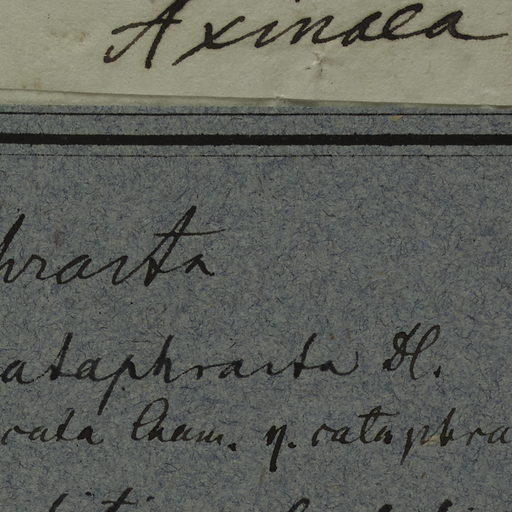 Axinaea
hracta
ataphracta Dl.
cata Cham. η. cataphra